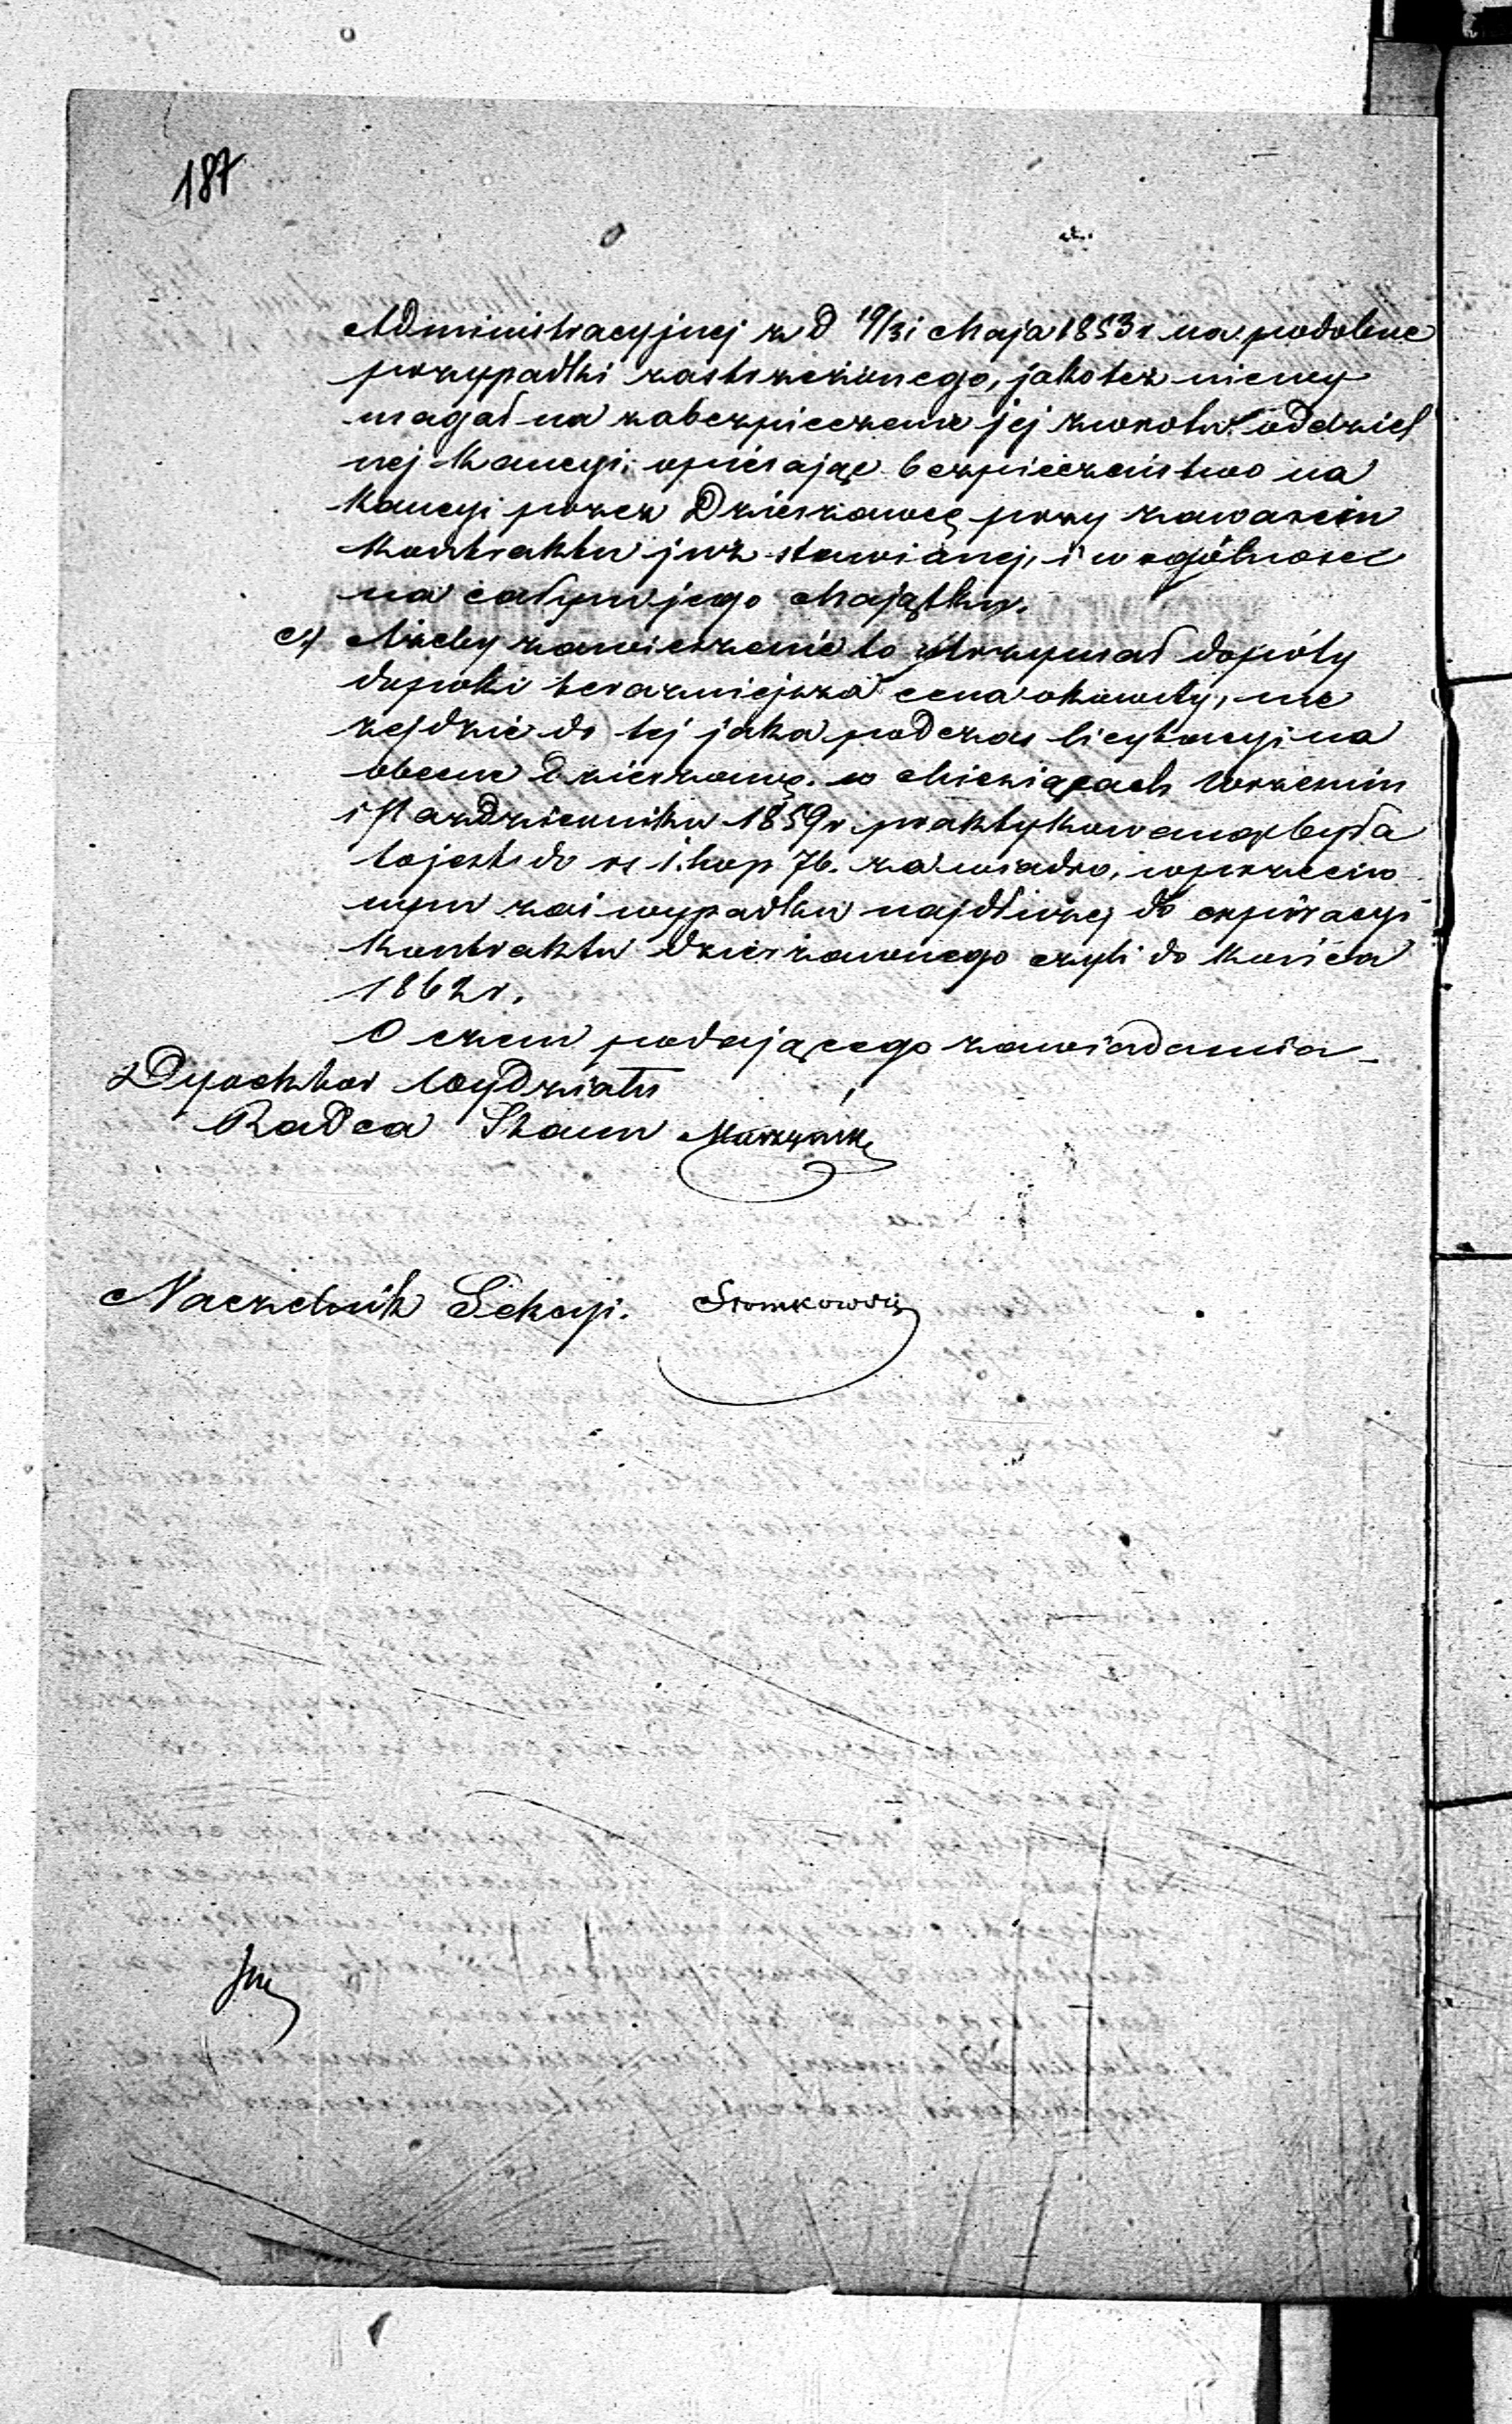 187
Administracyjnej z d 19/31 Maja 1853 r na podobne
przypadki zastrzeżonego, jakoteż niewy
magał na zabezpieczenie jej zwrotu oddziel
nej Kaucyi, opierając bezpieczeństwo na
Kaucyi przez Dzierżawcę przy zawarciu
Kontraktu już stawianej, i w ogólności
na całym jego Majątku.
c/ Ażeby zawieszenie to utrzymał dopóty
dopóki teraźniejsza cena okowity, nie
zejdzie do tej jaka podczas licytacyi na
obecną Dzierżawę w Miesiącach Wrześniu
i Październiku 1859 r praktykowaną była
tojest do rs 1. kop 76. za wiadro, wprzeciw
nym zaś wypadku najdłużej do expiracyi
Kontraktu Dzierżawnego czyli do końca
1862 r.
O czem podającego zawiadamia
Dyrektor Wydziału
Radca Stanu
Naczelnik Sekcyi. Słomkowski